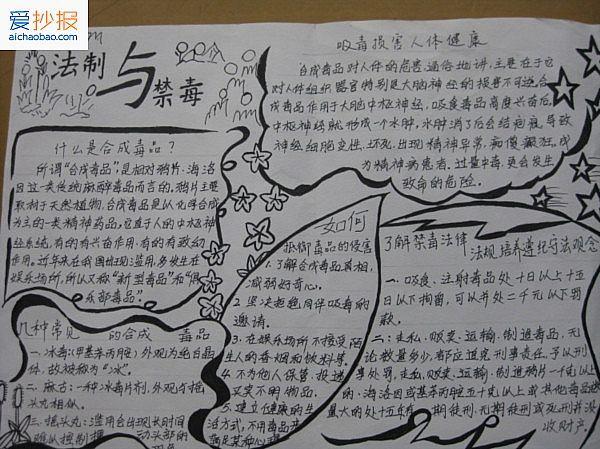 爱抄报
aichaobao.com
法制
与
禁毒
什么是合成毒品？
所谓“合成毒品”,是相对鸦片、海洛
因这一类传统麻醉毒品而言的,鸦片主要
取材于天然植物,合成毒品是以化学合成
为主的一类精神药品,它直于人的中枢神
经系统,有的有兴奋作用,有的有致幻
作用。近年来在我国出现滥用,多发生在
娱乐场所,所以又称“新型毒品”和“俱
乐部毒品”。
几种常见的合成毒品
一、冰毒:(甲基苯丙胺)外观为纯白晶
体,故被称为“冰”。
二、麻古:一种冰毒片剂,外观与摇
头丸相似。
三、摇头丸:滥用会出现长时间
难以控制
动头部的
吸毒损害人体健康
合成毒品对人体的危害,通俗地讲,主要在于它
对人体组织、器官特别是大脑神经的损害不可逆。合
成毒品作用于大脑中枢神经,吸食毒品高度兴奋后,
中枢神经就形成一个水肿,水肿消了后会结疤痕,导致
神经细胞变性、坏死,出现精神异常、痴傻癫狂,成
为精神病患者。过量中毒,更会发生
致命的危险。
如何
抵御毒品的侵害
1.了解合成毒品真相,
减弱好奇心。
2.坚决拒绝同伴吸毒的
邀请。
3.在娱乐场所不接受陌
生人的香烟和饮料等。
4.不为他人保管、投递
又卖不明物品。
5.建立健康的生
活方式,不用毒品去
满足某种心理
了解禁毒法律法规,培养遵纪守法观念
一、吸食、注射毒品处十日以上十五
日以下拘留,可以并处二千元以下罚
款。
二、走私、贩卖、运输、制造毒品,无
论数量多少,都应追究刑事责任,予以刑
事处罚,走私、贩卖、运输、制造鸦片一千克以上
的、海洛因或甲基苯丙胺五十克以上或其他毒品
量大的处十五年有期徒刑、无期徒刑或死刑并没
收财产。